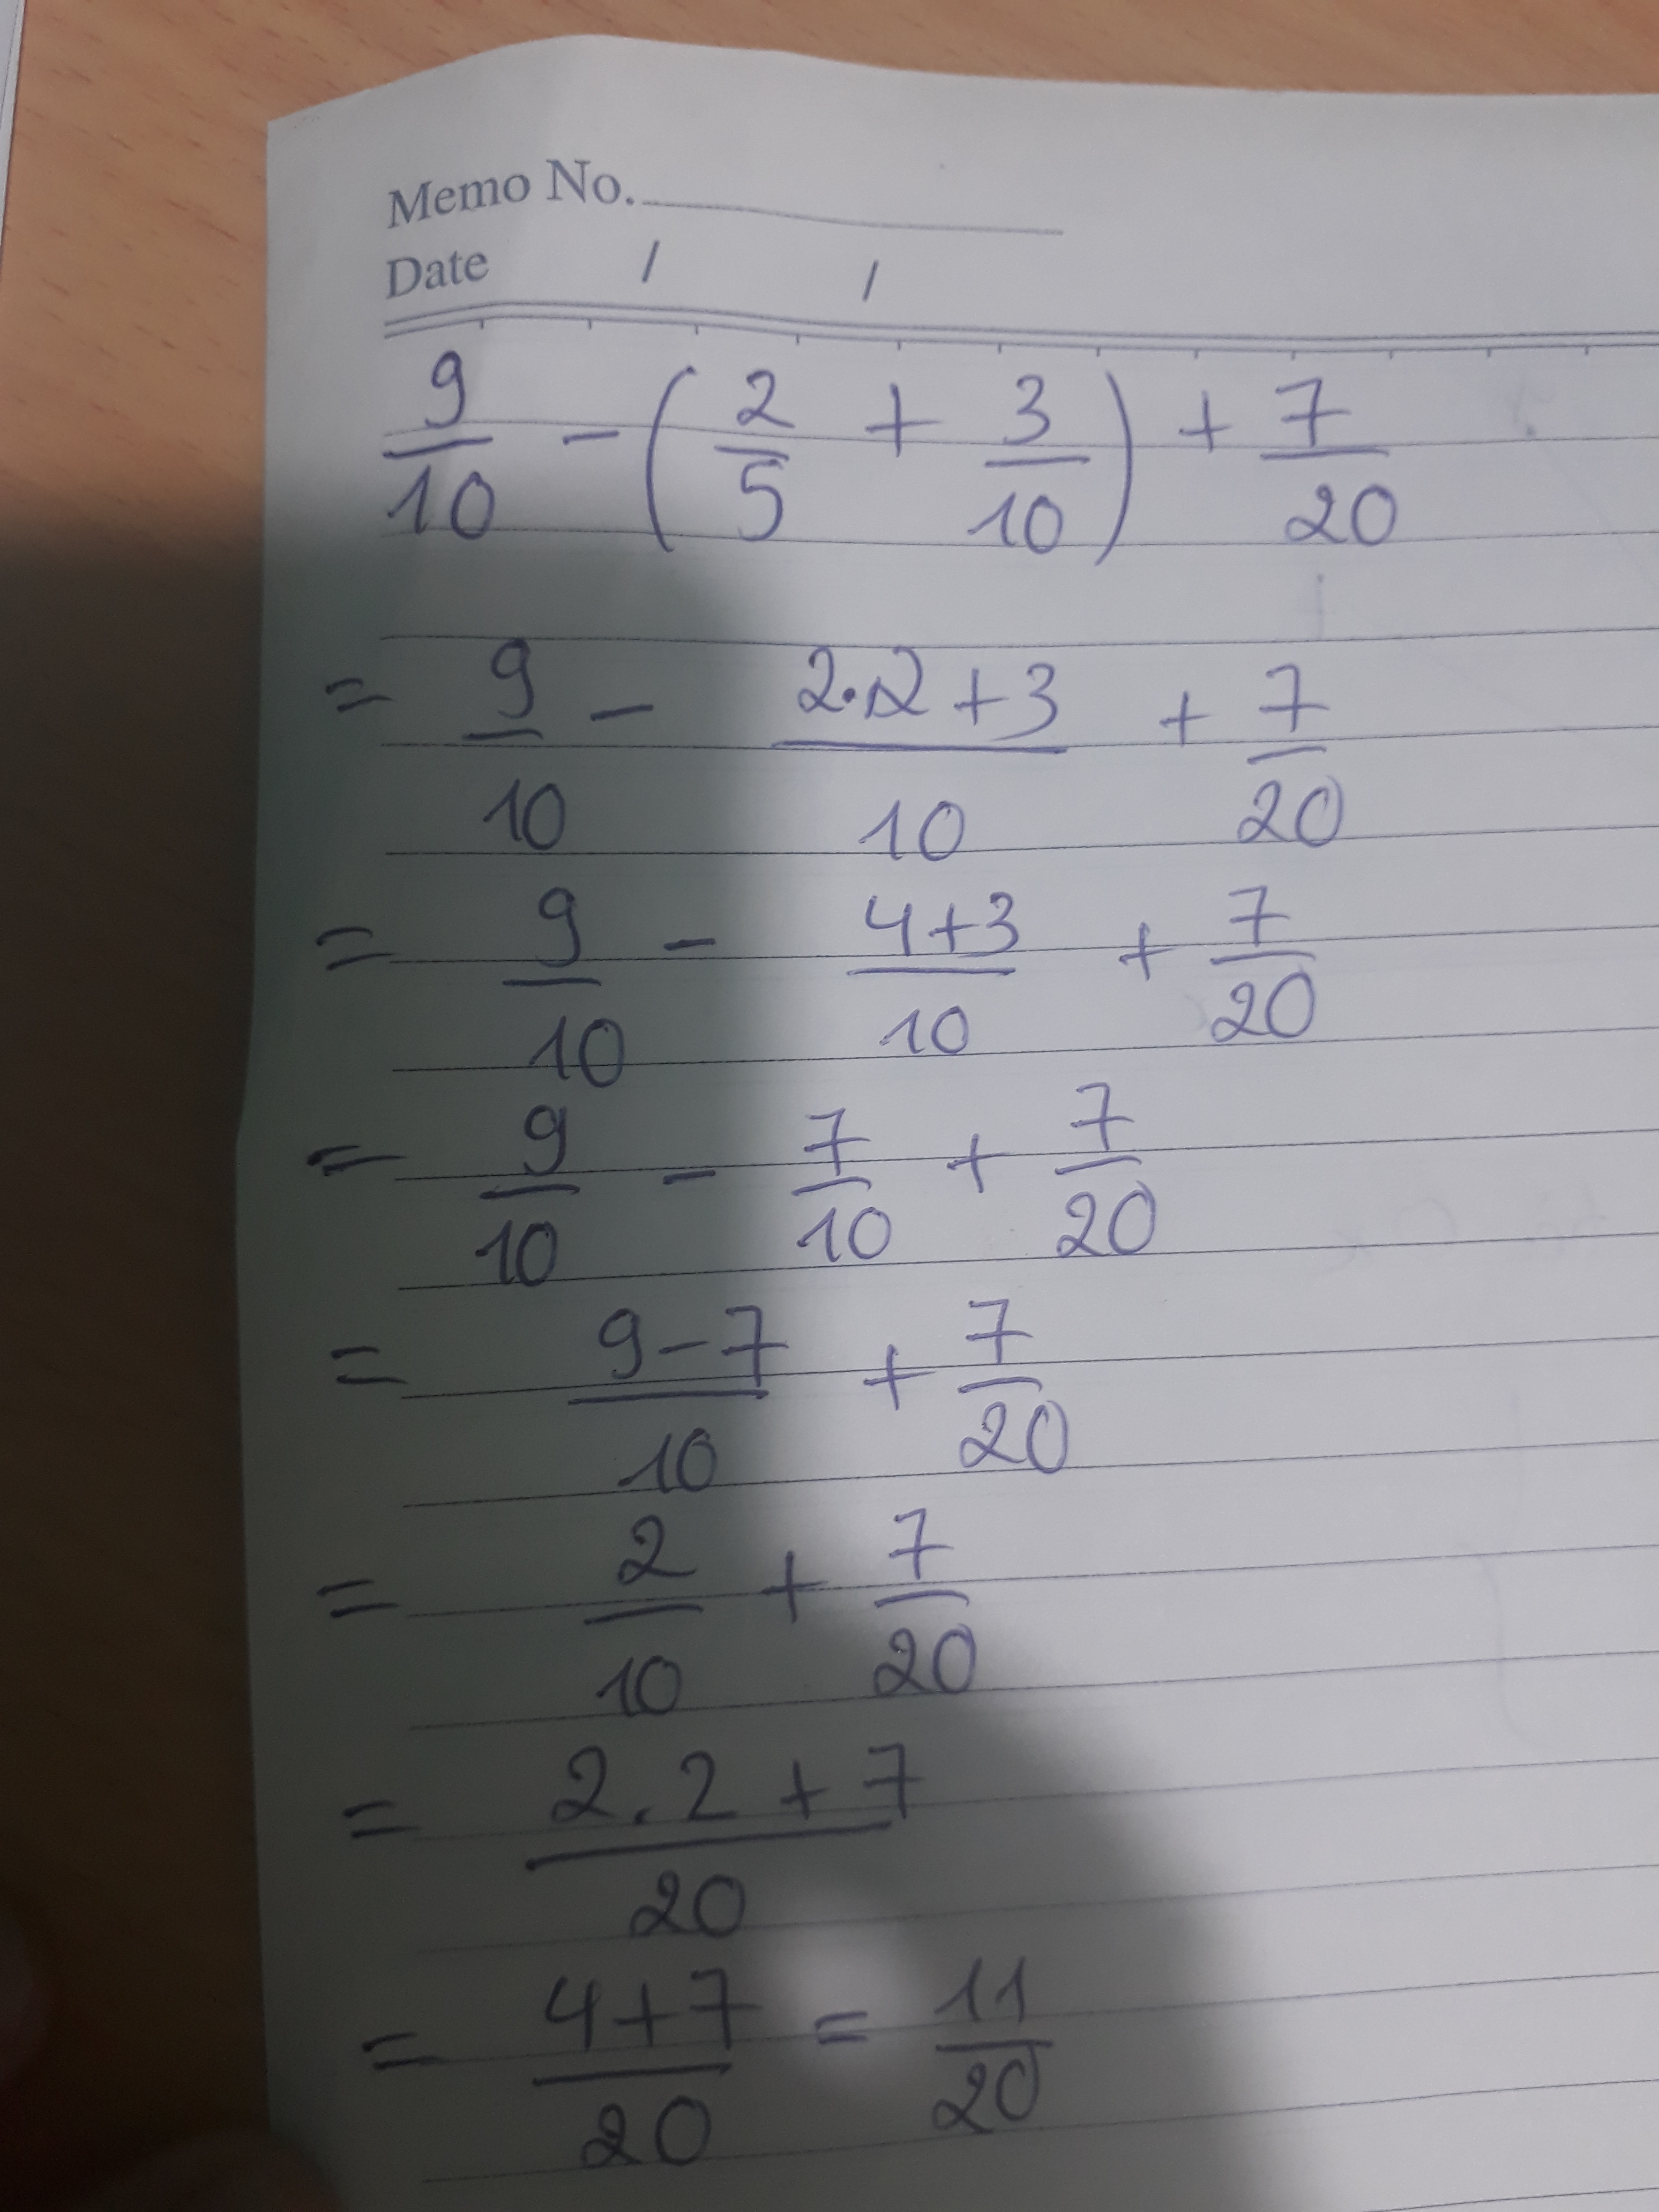 Memo No.
Date / /
9/10 - (2/5 + 3/10) + 7/20
= 9/10 - 2·2+3/10 + 7/20
= 9/10 - 4+3/10 + 7/20
= 9/10 - 7/10 + 7/20
= 9-7/10 + 7/20
= 2/10 + 7/20
= 2.2+7/20
= 4+7/20 = 11/20